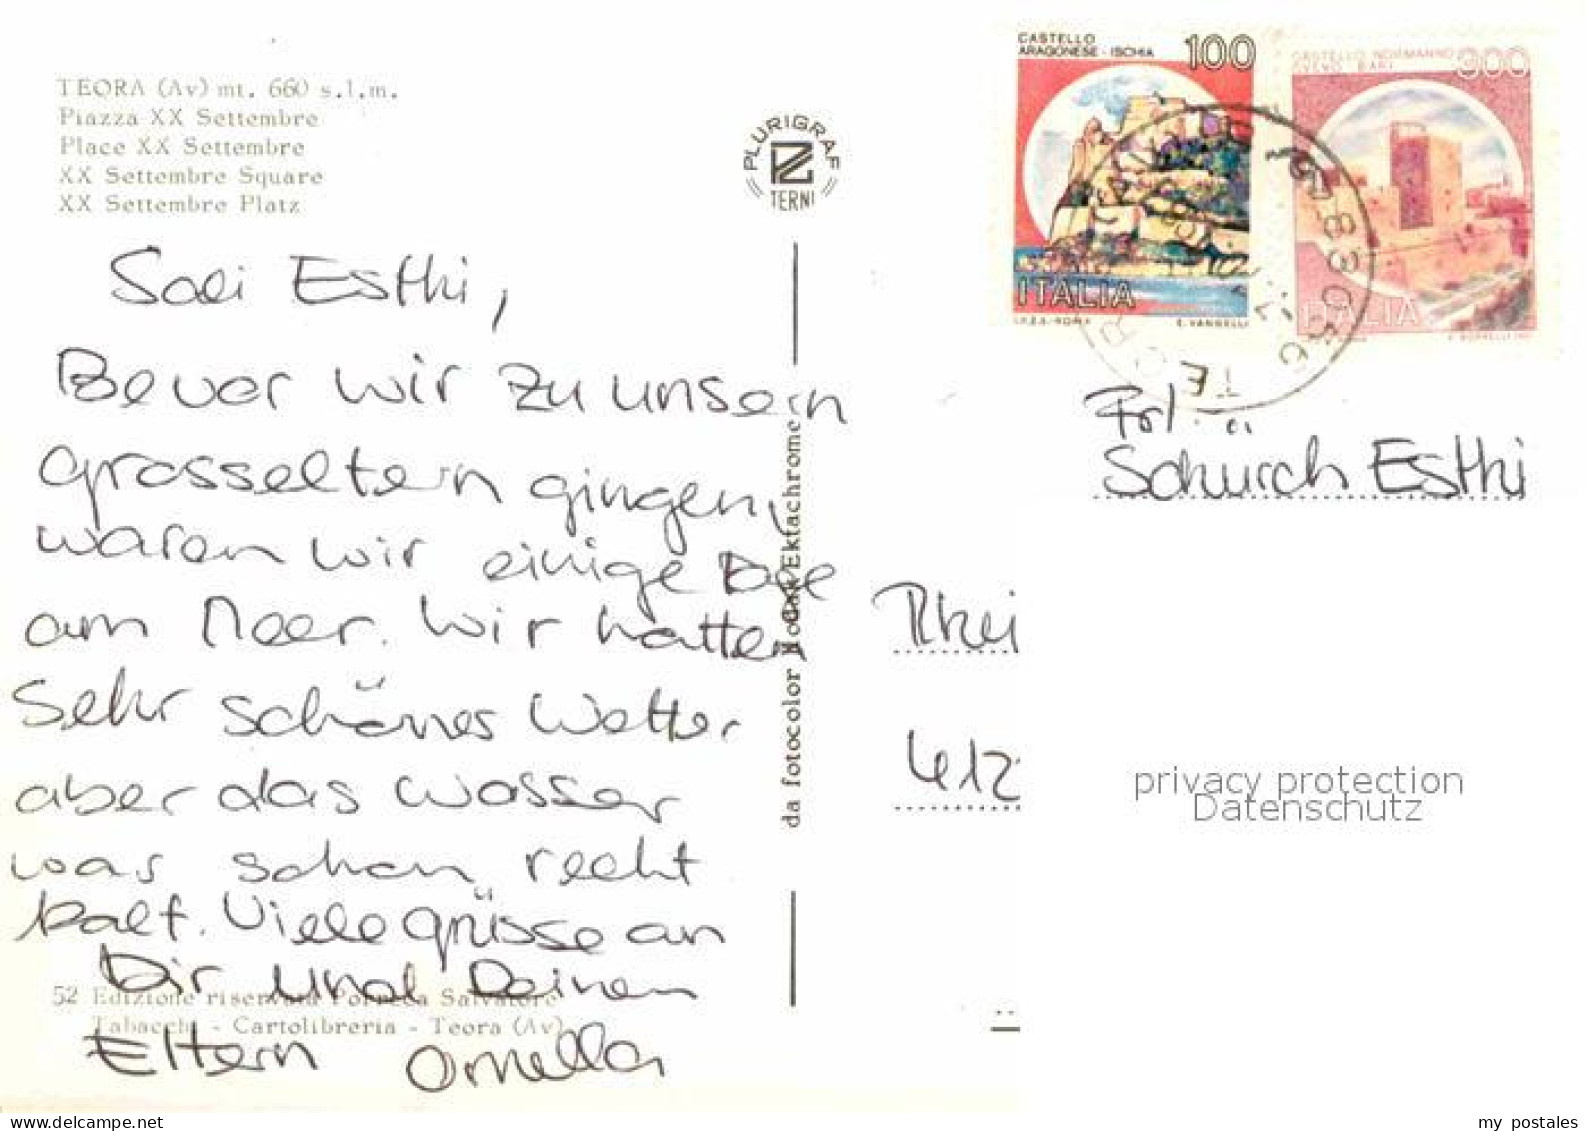 TEORA (Av) mt. 660 s.l.m.
Piazza XX Settembre
Place XX Settembre
XX Settembre Square
XX Settembre Platz
PLURIGRAF
TERNI
CASTELLO
ARAGONESE - ISCHIA 100
ITALIA
I.P.Z.S. - ROMA E. VANGELLI
CASTELLO NORMANNO 300
SVEVO BARI
ITALIA
83056
TEOR
Sali Esthi,
Bevor wir zu unsern
grosseltern gingen,
waren wir einige
am Meer. Wir hatten
sehr schönes Wetter
aber das Wasser
war schon recht
kalt. Viele grüsse an
Dir und Deinen
Eltern Ornella
da fotocolor Kodak Ektachrome
52 Edizione riservata Porreca Salvatore
Tabacchi - Cartolibreria - Teora (Av)
Frl.
Schürch Esthi
Rhei
412
privacy protection
Datenschutz
my postales